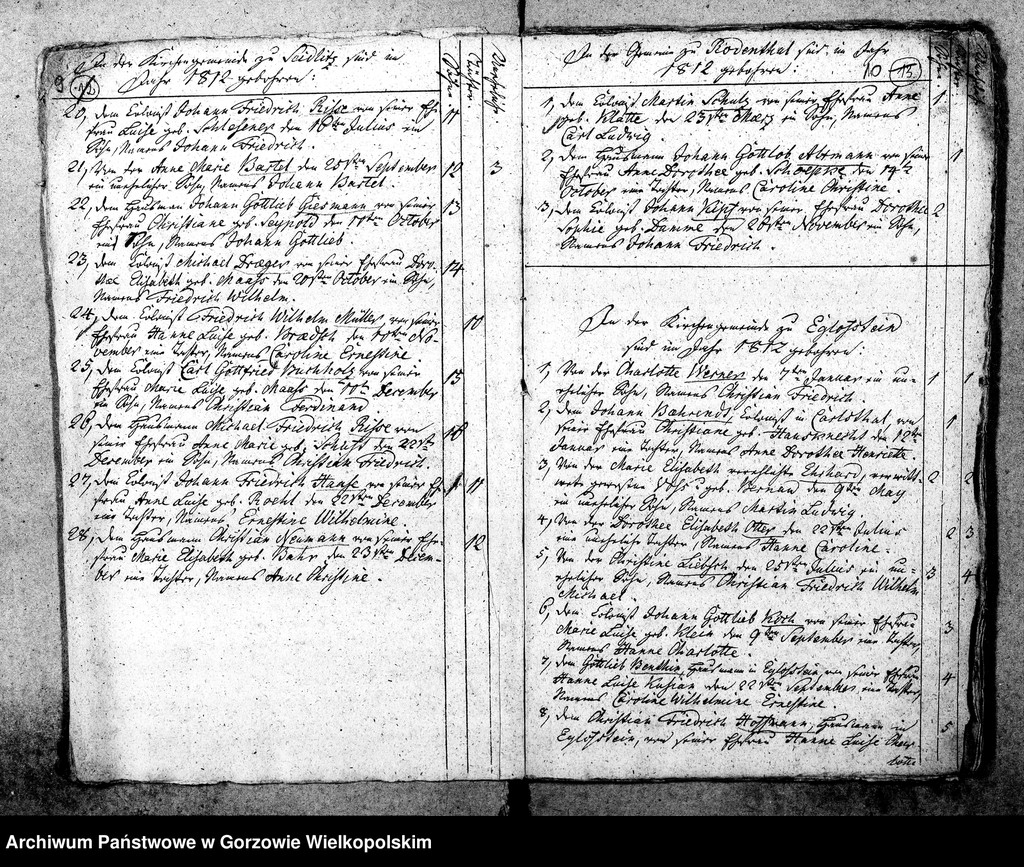 9
In der Kirchengemeinde zu Seidlitz sind im
Jahr 1812 gebohren:
Söhne
Töchter
Unehel.
20, dem Colonist Johann Friedrich Riesse von seiner Ehe- 11
frau Luise geb. Schlesener den 16ten Julius ein
Sohn, Namens Johann Friedrich.
21, Von der Anne Marie Bartel den 25sten September 12 3
ein unehelicher Sohn, Namens Johann Bartel.
22, dem Hausmann Johann Gottlieb Giesmann von seiner 13
Ehefrau Christiane geb. Seypold den October
ein Sohn, Namens Johann Gottlieb.
23, dem Colonist Michael Draeger von seiner Ehefrau Doro- 14
thee Elisabeth geb. Maass den 20sten October ein Sohn,
Namens Friedrich Wilhelm.
24, dem Colonist Friedrich Wilhelm Müller von seiner 10
Ehefrau Hanne Luise geb. den 10ten No-
vember eine Tochter, Namens Caroline Ernestine
25, dem Colonist Carl Gottfried Buchholz von seiner 15
Ehefrau Marie Luise geb. Maass den December
ein Sohn, Namens Christian Ferdinand
26, dem Hausmann Michael Friedrich Riesse von 16
seiner Ehefrau Anne Marie geb. den 22sten
December ein Sohn, Namens Christian Friedrich.
27, dem Colonist Johann Friedrich Hanse von seiner Ehe- 11
frau Anne Luise geb. Roehl den 22sten December
eine Tochter, Namens Ernestine Wilhelmine.
28, dem Hausmann Christian Neumann von seiner Ehe- 12
frau Marie Elisabeth geb. Bahr den 23sten Decem-
ber eine Tochter, Namens Anne Christine.
In der Gemeine zu Rodenthal sind im Jahr
1812 gebohren:
10 13.
Söhne
Töchter
Unehel.
1, dem Colonist Martin Schulz von seiner Ehefrau Anne 1
geb. Klatte den 23sten März ein Sohn, Namens
Carl Ludwig.
2, dem Hausmann Johann Gottlob Altmann von seiner 1
Ehefrau Anne Dorothee geb. den 14ten
October eine Tochter, Namens Caroline Christine.
3, dem Colonist Johann von seiner Ehefrau Dorothee 2
Sophie geb. Damme den 28sten November ein Sohn,
Namens Johann Friedrich.
In der Kirchengemeinde zu Egloffstein
sind im Jahr 1812 gebohren:
1, Von der Charlotte Werner den 7ten Januar ein un- 1 1
ehelicher Sohn, Namens Christian Friedrich.
2, dem Johann Bahrendt, Colonist in Carlsthal, von 1
seiner Ehefrau Christiane geb. Hausknecht den
Januar eine Tochter, Namens Anne Dorothee Henriette.
3, Von der Marie Elisabeth verehlichte Ehrhard, verwitt- 2 2
wete gewesene geb. Werner den 9ten May
ein unehelicher Sohn, Namens Martin Ludwig.
4, Von der Dorothee Elisabeth Otto den 22sten Julius 2 3
eine uneheliche Tochter, Namens Hanne Caroline.
5, Von der Christine Liebsch den 25sten Julius ein un- 3 4
ehelicher Sohn, Namens Christian Friedrich Wilhelm
Michael.
6, dem Colonist Johann Gottlieb Koch von seiner Ehefrau 3
Marie Luise geb. Klein den 9ten September eine Tochter,
Namens Hanne Charlotte.
7, dem Gottlieb Benthin, Hausmann in Egloffstein, von seiner Ehefrau 4
Hanne Luise Kusian den 22sten September eine Tochter,
Namens Caroline Wilhelmine Ernestine.
8, dem Christian Friedrich Hoffmann, Hausmann in 5
Egloffstein, von seiner Ehefrau Hanne Luise Char-
lotte
Archiwum Państwowe w Gorzowie Wielkopolskim